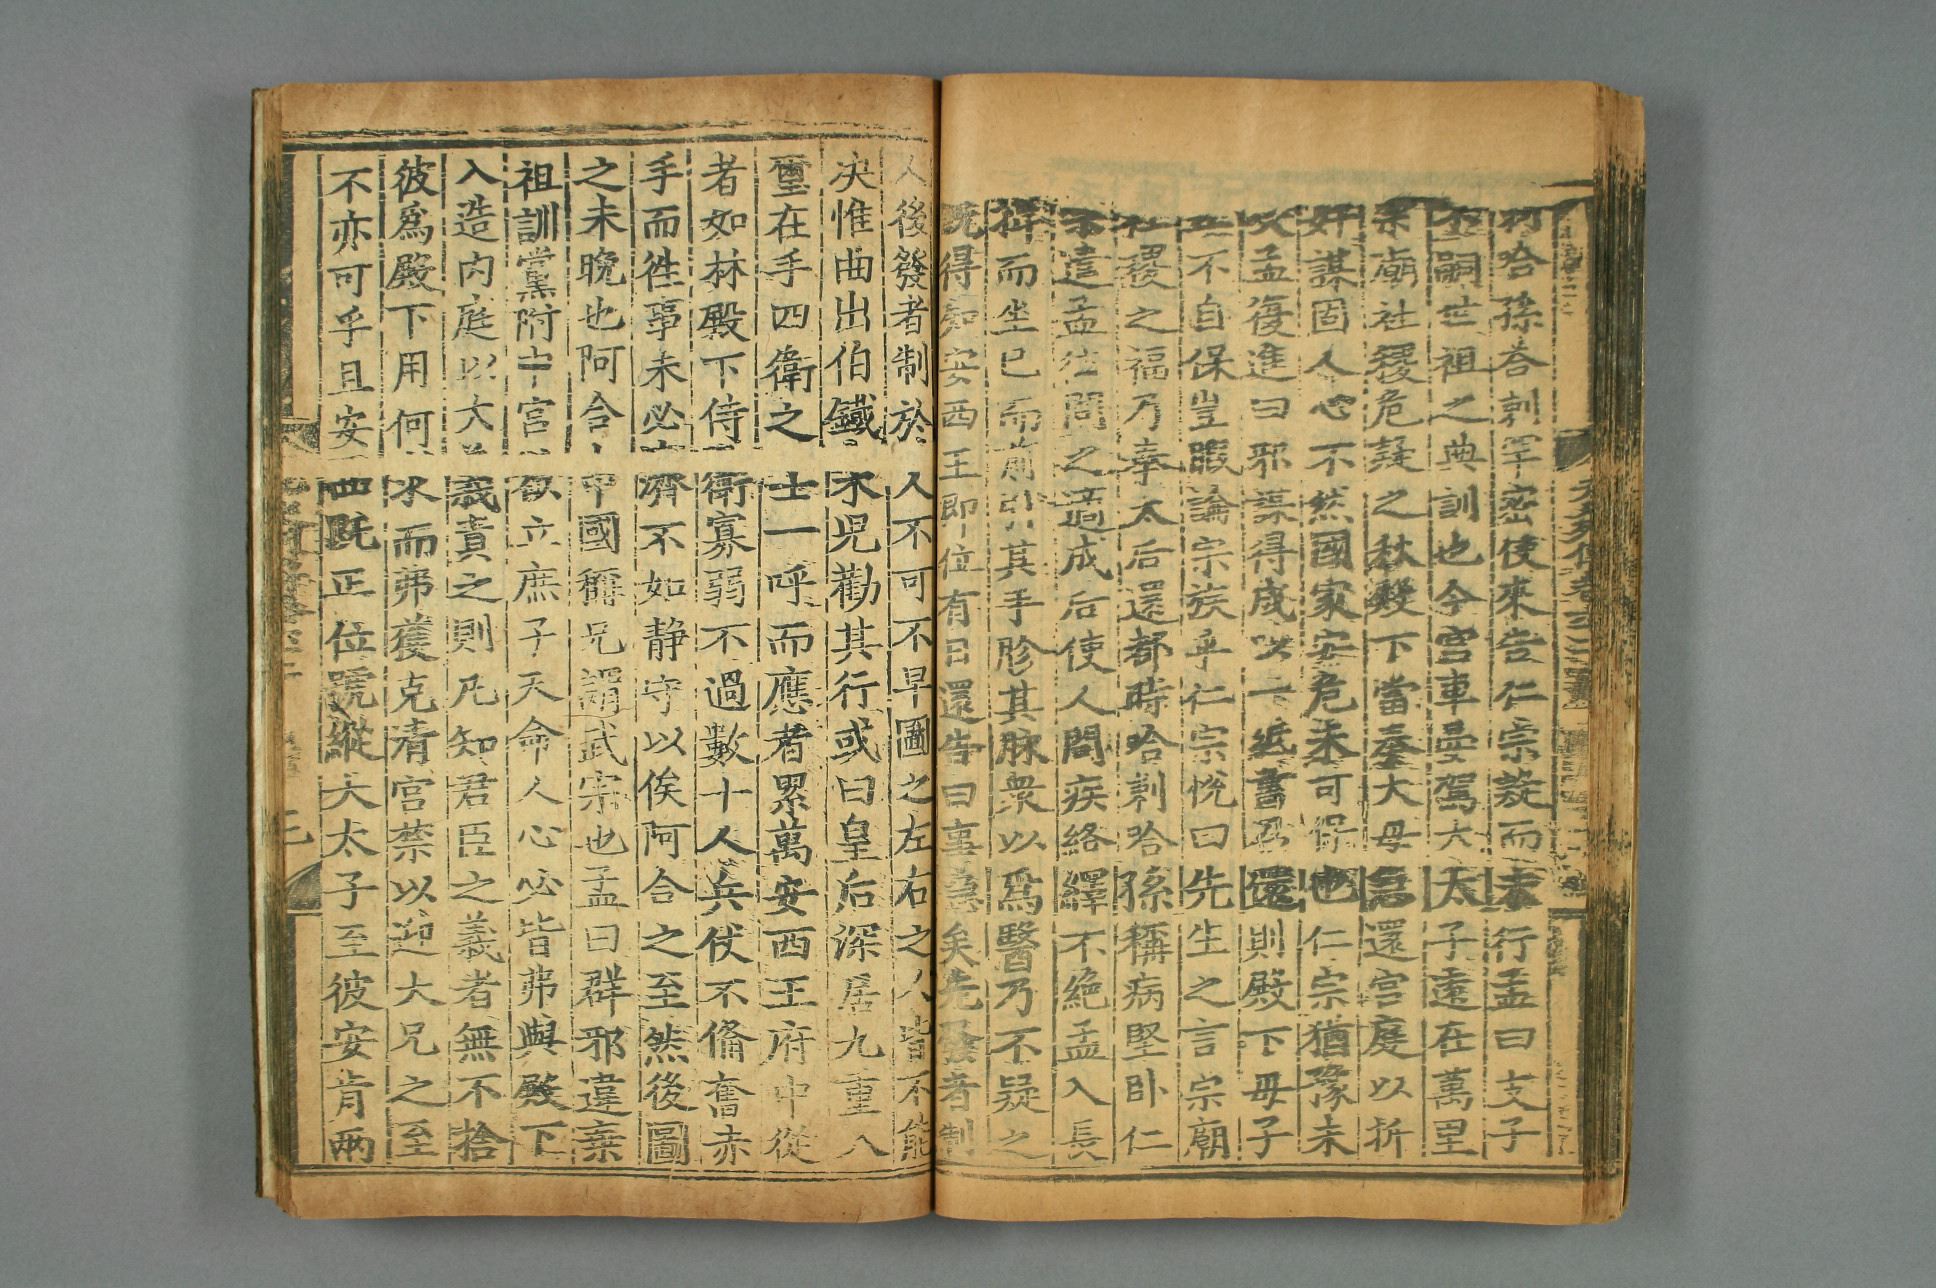 哈孫荅剌罕密使來告仁宗疑而未行孟曰支子
不嗣世祖之典訓也今宮車晏駕大太子遠在萬里
宗廟社稷危疑之秋殿下當奉大母急還宮庭以折
奸謀固人心不然國家安危未可保也仁宗猶豫未
决孟復進曰邪謀得成以一紙書召還則殿下母子
且不自保豈暇論宗族乎仁宗悅曰先生之言宗廟
社稷之福乃奉太后還都時哈剌哈孫稱病堅卧仁
宗遣孟徃問之適成后使人問疾絡繹不絶孟入長
揖而坐已而前引其手胗其脉衆以爲醫乃不疑之
既得知安西王即位有日還告曰事急矣先發者制
人後發者制於人不可不早圖之左右之人皆不能
决惟曲出伯鐵木兒勸其行或曰皇后深居九重八
璽在手四衛之士一呼而應者累萬安西王府中從
者如林殿下侍衛寡弱不過數十人兵仗不備奮赤
手而徃事未必濟不如静守以俟阿合之至然後圖
之未晚也阿合中國稱兄謂武宗也孟曰群邪違棄
祖訓黨附中宮欲立庶子天命人心必皆弗與殿下
入造内庭以大義責之則凡知君臣之義者無不捨
彼爲殿下用何求而弗獲克清宮禁以迎大兄之至
不亦可乎且安西既正位號縱大太子至彼安肯兩